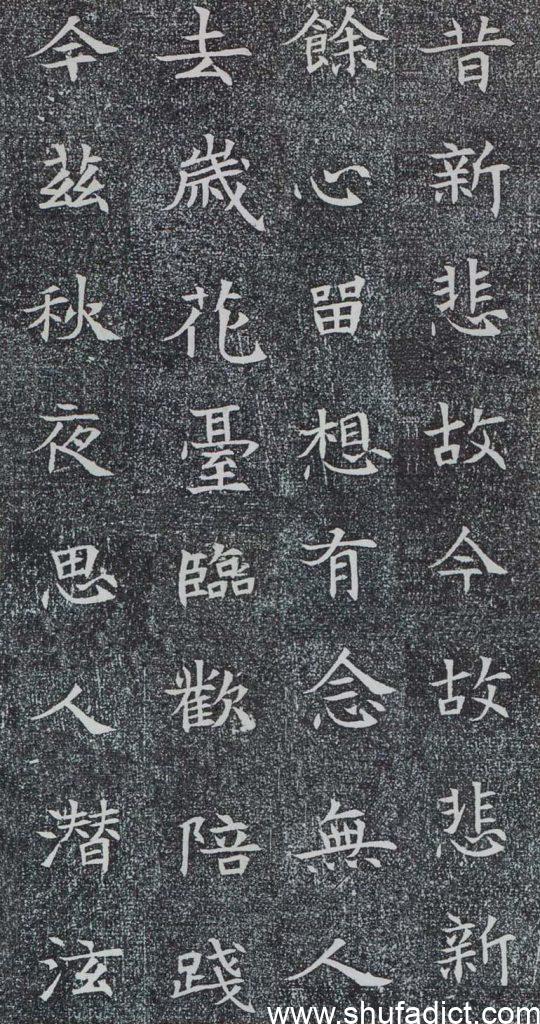 昔新悲故今故悲新
餘心留想有念無人
去歲花臺臨歡陪踐
今茲秋夜思人潛泫
www.shufadict.com